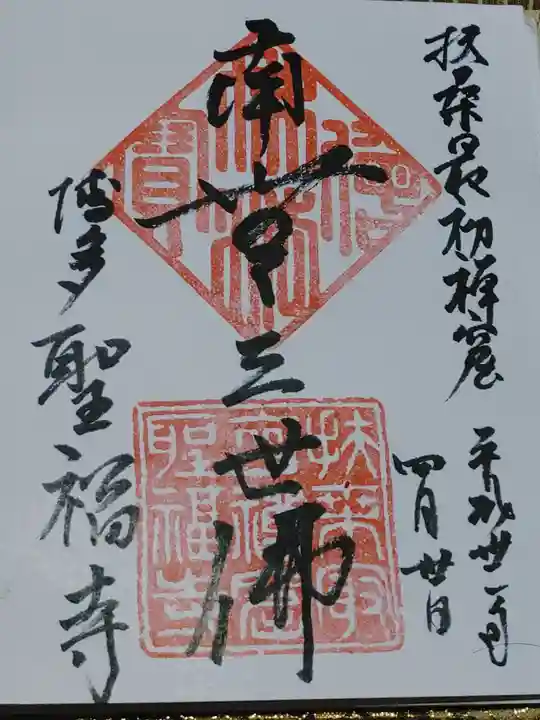 扶桑最初禅窟
平成卅一年
四月廿日
南無三世佛
博多聖福寺
扶桑最初禅窟聖福寺